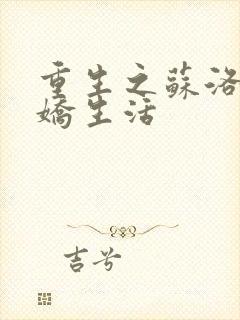 重生之蘇洛
嬌生活
吉兮